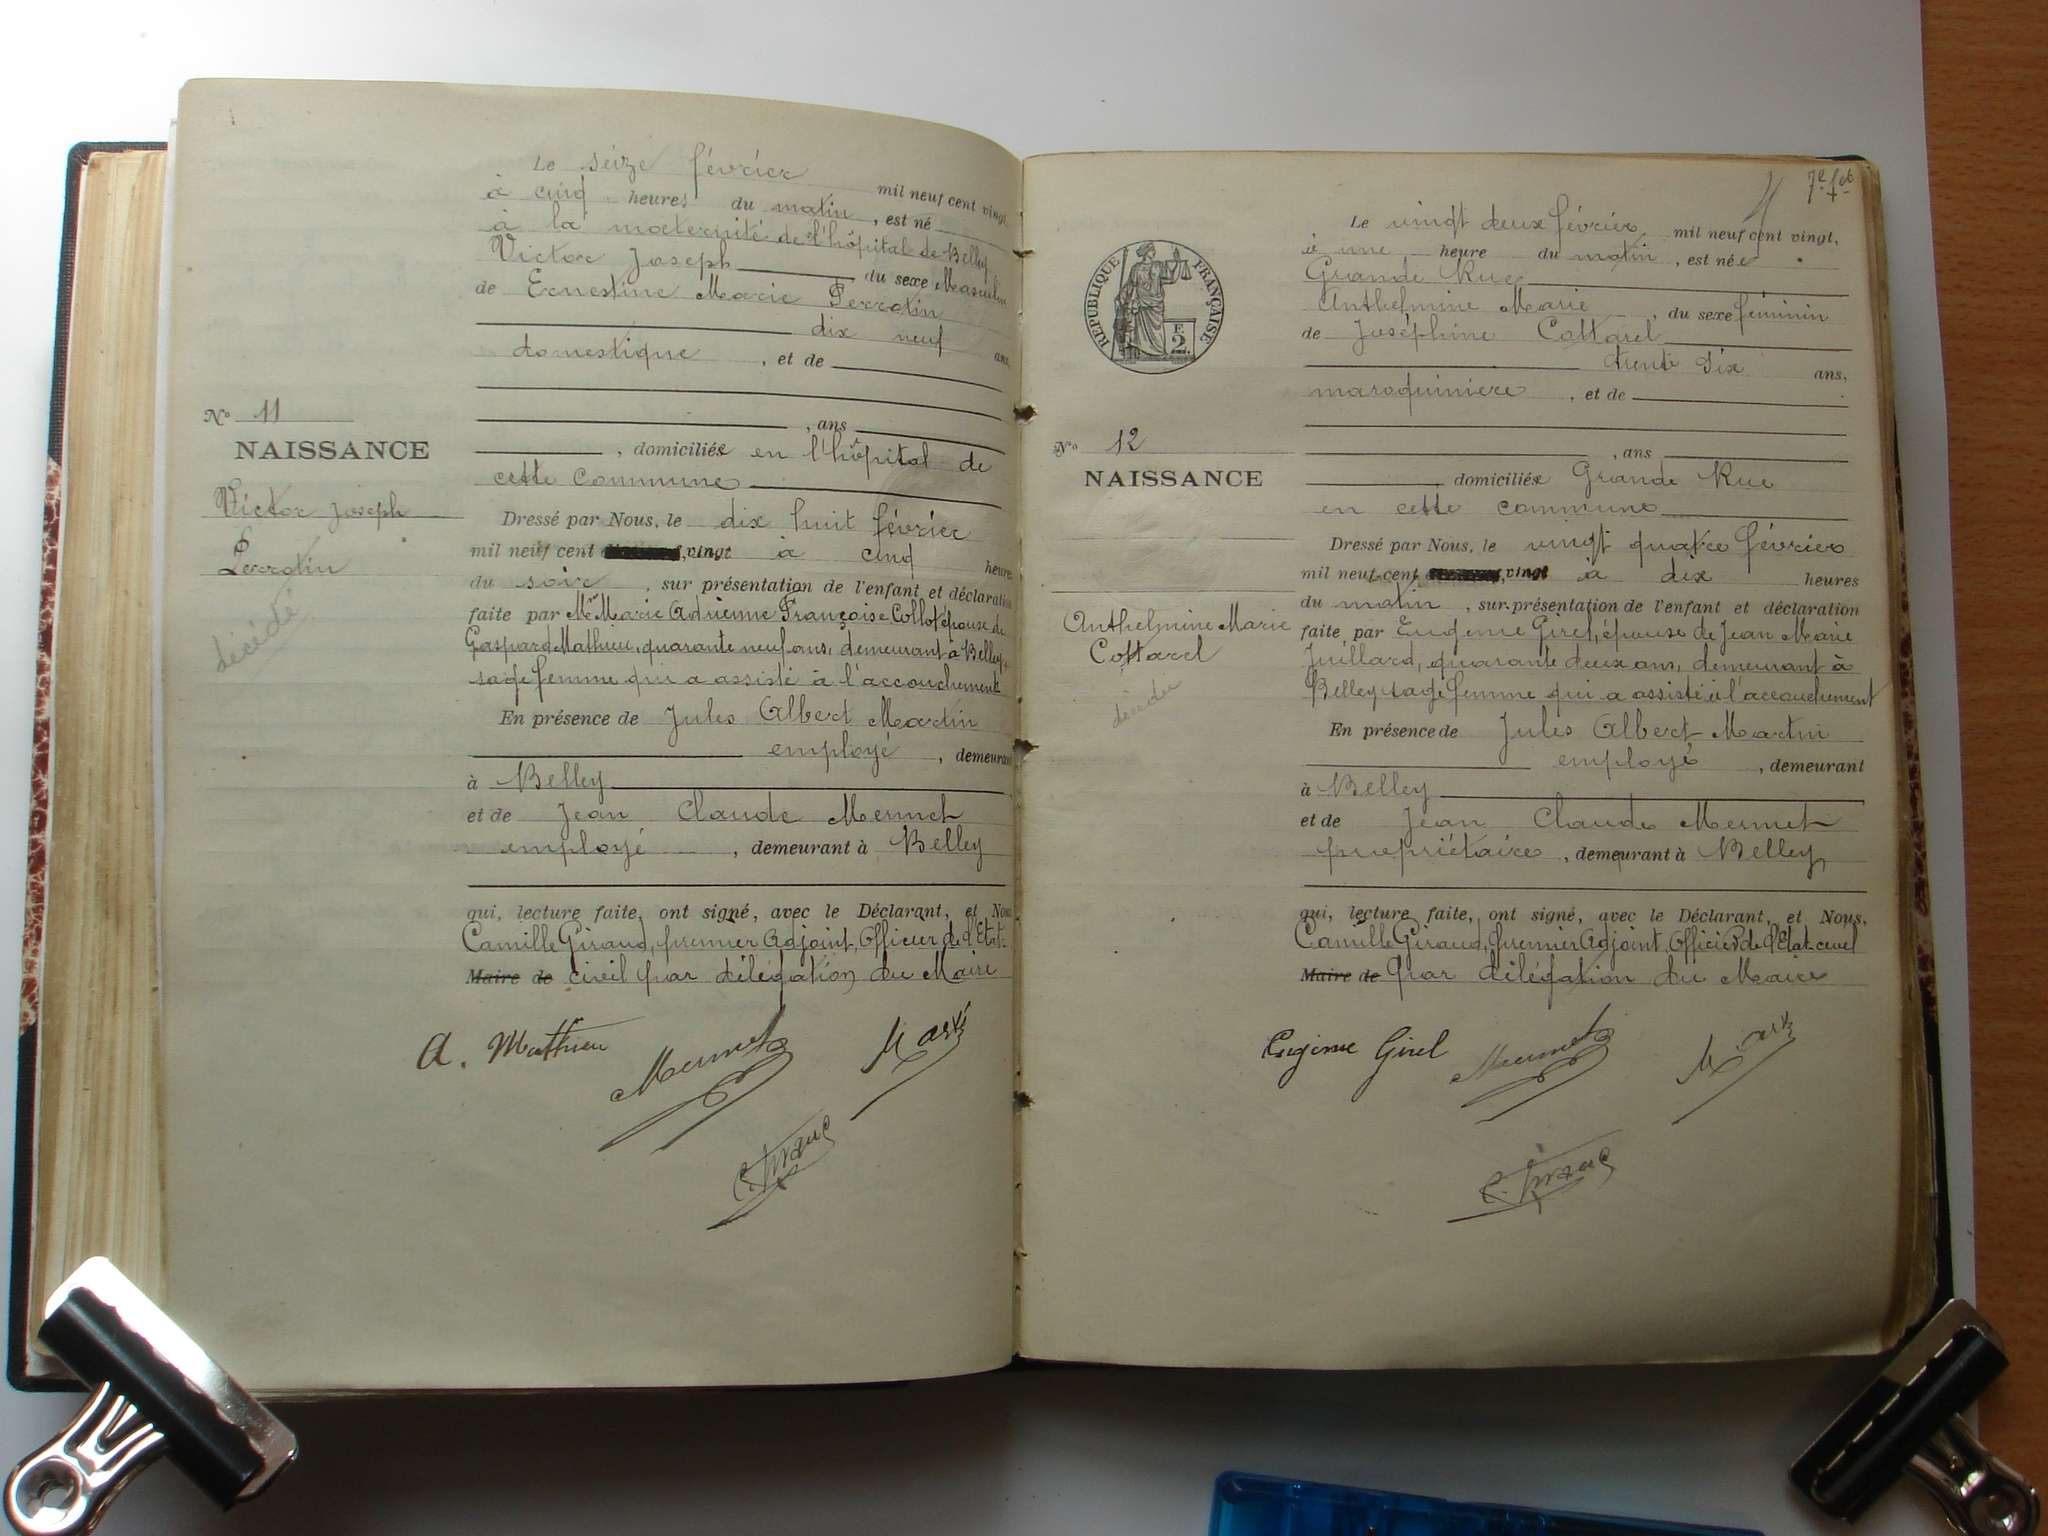 Le seize février mil neuf cent vingt
à cinq heures du matin, est né
à la maternité de l'hôpital de Belley
Victor Joseph du sexe Masculin
de Ernestine Marie Perrotin
dix neuf ans
domestique, et de
, ans
, domiciliée en l'hôpital de
cette commune
Nº 11
NAISSANCE
Victor Joseph
Perrotin
décédé
Dressé par Nous, le dix huit février
mil neuf cent vingt à cinq heures
du soir, sur présentation de l'enfant et déclaration
faite par Mme Marie Adrienne Françoise Collot épouse de
Gaspard Mathieu, quarante neuf ans, demeurant à Belley,
sage femme qui a assisté à l'accouchement
En présence de Jules Albert Martin
employé, demeurant
à Belley
et de Jean Claude Mermet
employé, demeurant à Belley
qui, lecture faite, ont signé, avec le Déclarant, et Nous
Camille Giraud, premier Adjoint, Officier de l'Etat-
Maire de civil par délégation du Maire
A. Mathieu Mermet Martin
C. Giraud
7e fet
Le vingt deux février mil neuf cent vingt,
à une heure du matin, est née
Grande Rue
Anthelmine Marie, du sexe féminin
de Joséphine Cottarel
trente six ans,
maroquinière, et de
, ans
domiciliée Grande Rue
en cette commune
REPUBLIQUE FRANÇAISE
2
Nº 12
NAISSANCE
Anthelmine Marie
Cottarel
décédée
Dressé par Nous, le vingt quatre février
mil neuf cent vingt à dix heures
du matin, sur présentation de l'enfant et déclaration
faite par Eugénie Girel, épouse de Jean Marie
Juillard, quarante deux ans, demeurant à
Belley sage femme qui a assisté à l'accouchement
En présence de Jules Albert Martin
employé, demeurant
à Belley
et de Jean Claude Mermet
propriétaire, demeurant à Belley,
qui, lecture faite, ont signé, avec le Déclarant, et Nous,
Camille Giraud, premier Adjoint, Officier de l'Etat-civil
Maire de par délégation du Maire
Eugénie Girel Mermet Martin
C. Giraud